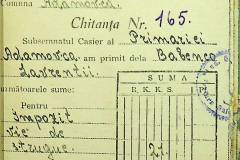 Comuna Adamovca.
Chitanța Nr. 165.
Subsemnatul Casier al Primariei
Adamovca. am primit dela Babenco
Lavrentii.
următoarele sume:
SUMA
Pentru
B. K. K. S.
impozit
vie de
strugue.
21